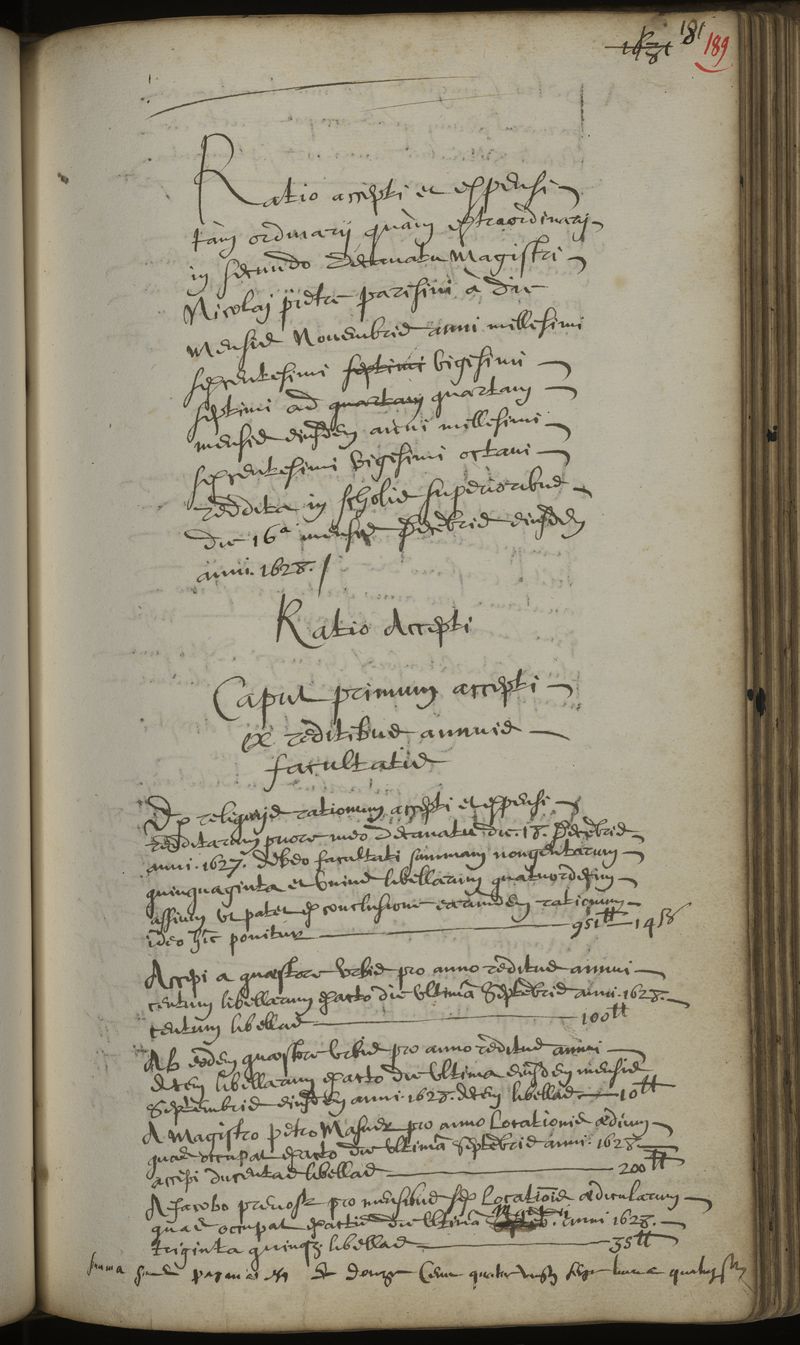 181 189
Ratio accepti et expensi
tàm ordinarij quàm extraordinarij
in secundo decanatu Magistri
Nicolaj pietre parisini à die
mensis Nouembris anni millesimi
sexcentesimi septimi vigesimi
septimi ad quartam quartam
mensis eiusdem anni millesimi
sexcentesimi vigesimi octaui
reddita in scholis superioribus
die 16a mensis Decebris eiusdem
anni. 1628.
Ratio Accepti
Caput primum accepti
ex reditibus annuis
facultatis
Ex reliquijs rationum accepti et expensi
redditarum priore meo decanatu die. 18. Decebris
anni. 1627. debeo facultati summam nongentarum
quinquaginta et vnius libellarum quatuordecim
assium vt patet ex conclusione earumdem rationum
ideo hîc ponitur 951tt 14 ß
Accepi a quaestore vrbis pro anno reditus annui
centum libellarum exacto die vltimâ Septebris anni. 1628.
centum libellas 100tt
Ab eodem quaestore vrbis pro anno reditus annui
decem libellarum exacto die vltima eiusdem mensis
Septembris eiusdem anni. 1628. decem libellas 10tt
A Magistro petro Masuer pro anno locationis aedium
quas occupat exacto die vltimâ Septebris anni. 1628
accepi ducentas libellas 200tt
A Jacobo preuost pro mensibus sex locationis aedicularum
quas occupat exactis die vltimâ anni 1628.
triginta quinq; libellas 35tt